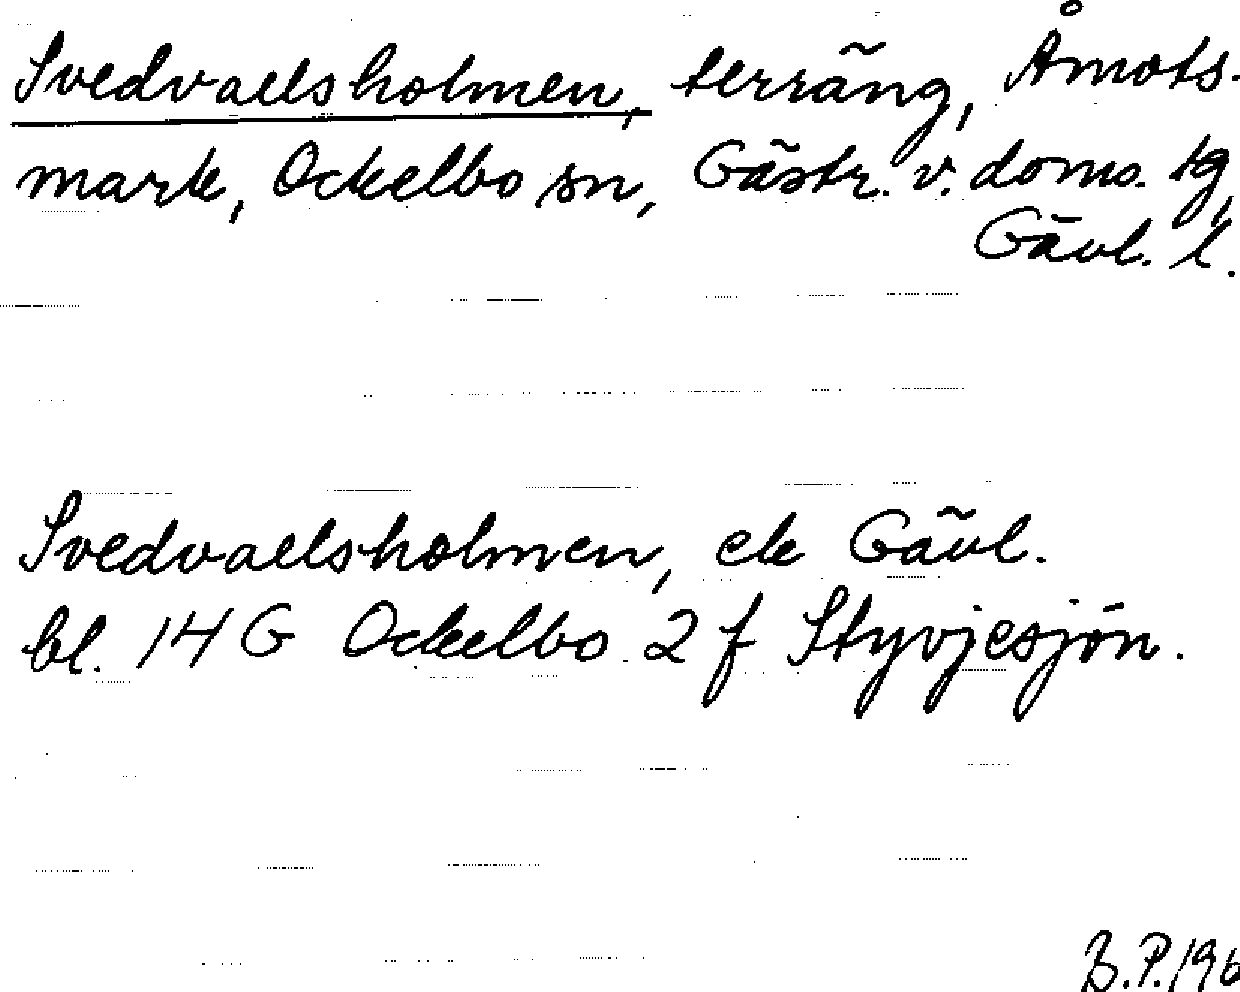 Svedvallsholmen, terräng, Åmots-
mark, Ockelbo sn, Gästr. v. doms. tg,
Gävl. l.
Svedvallsholmen, ek Gävl.
bl. 14 G Ockelbo 2 f Styvjesjön.
B.P. 196